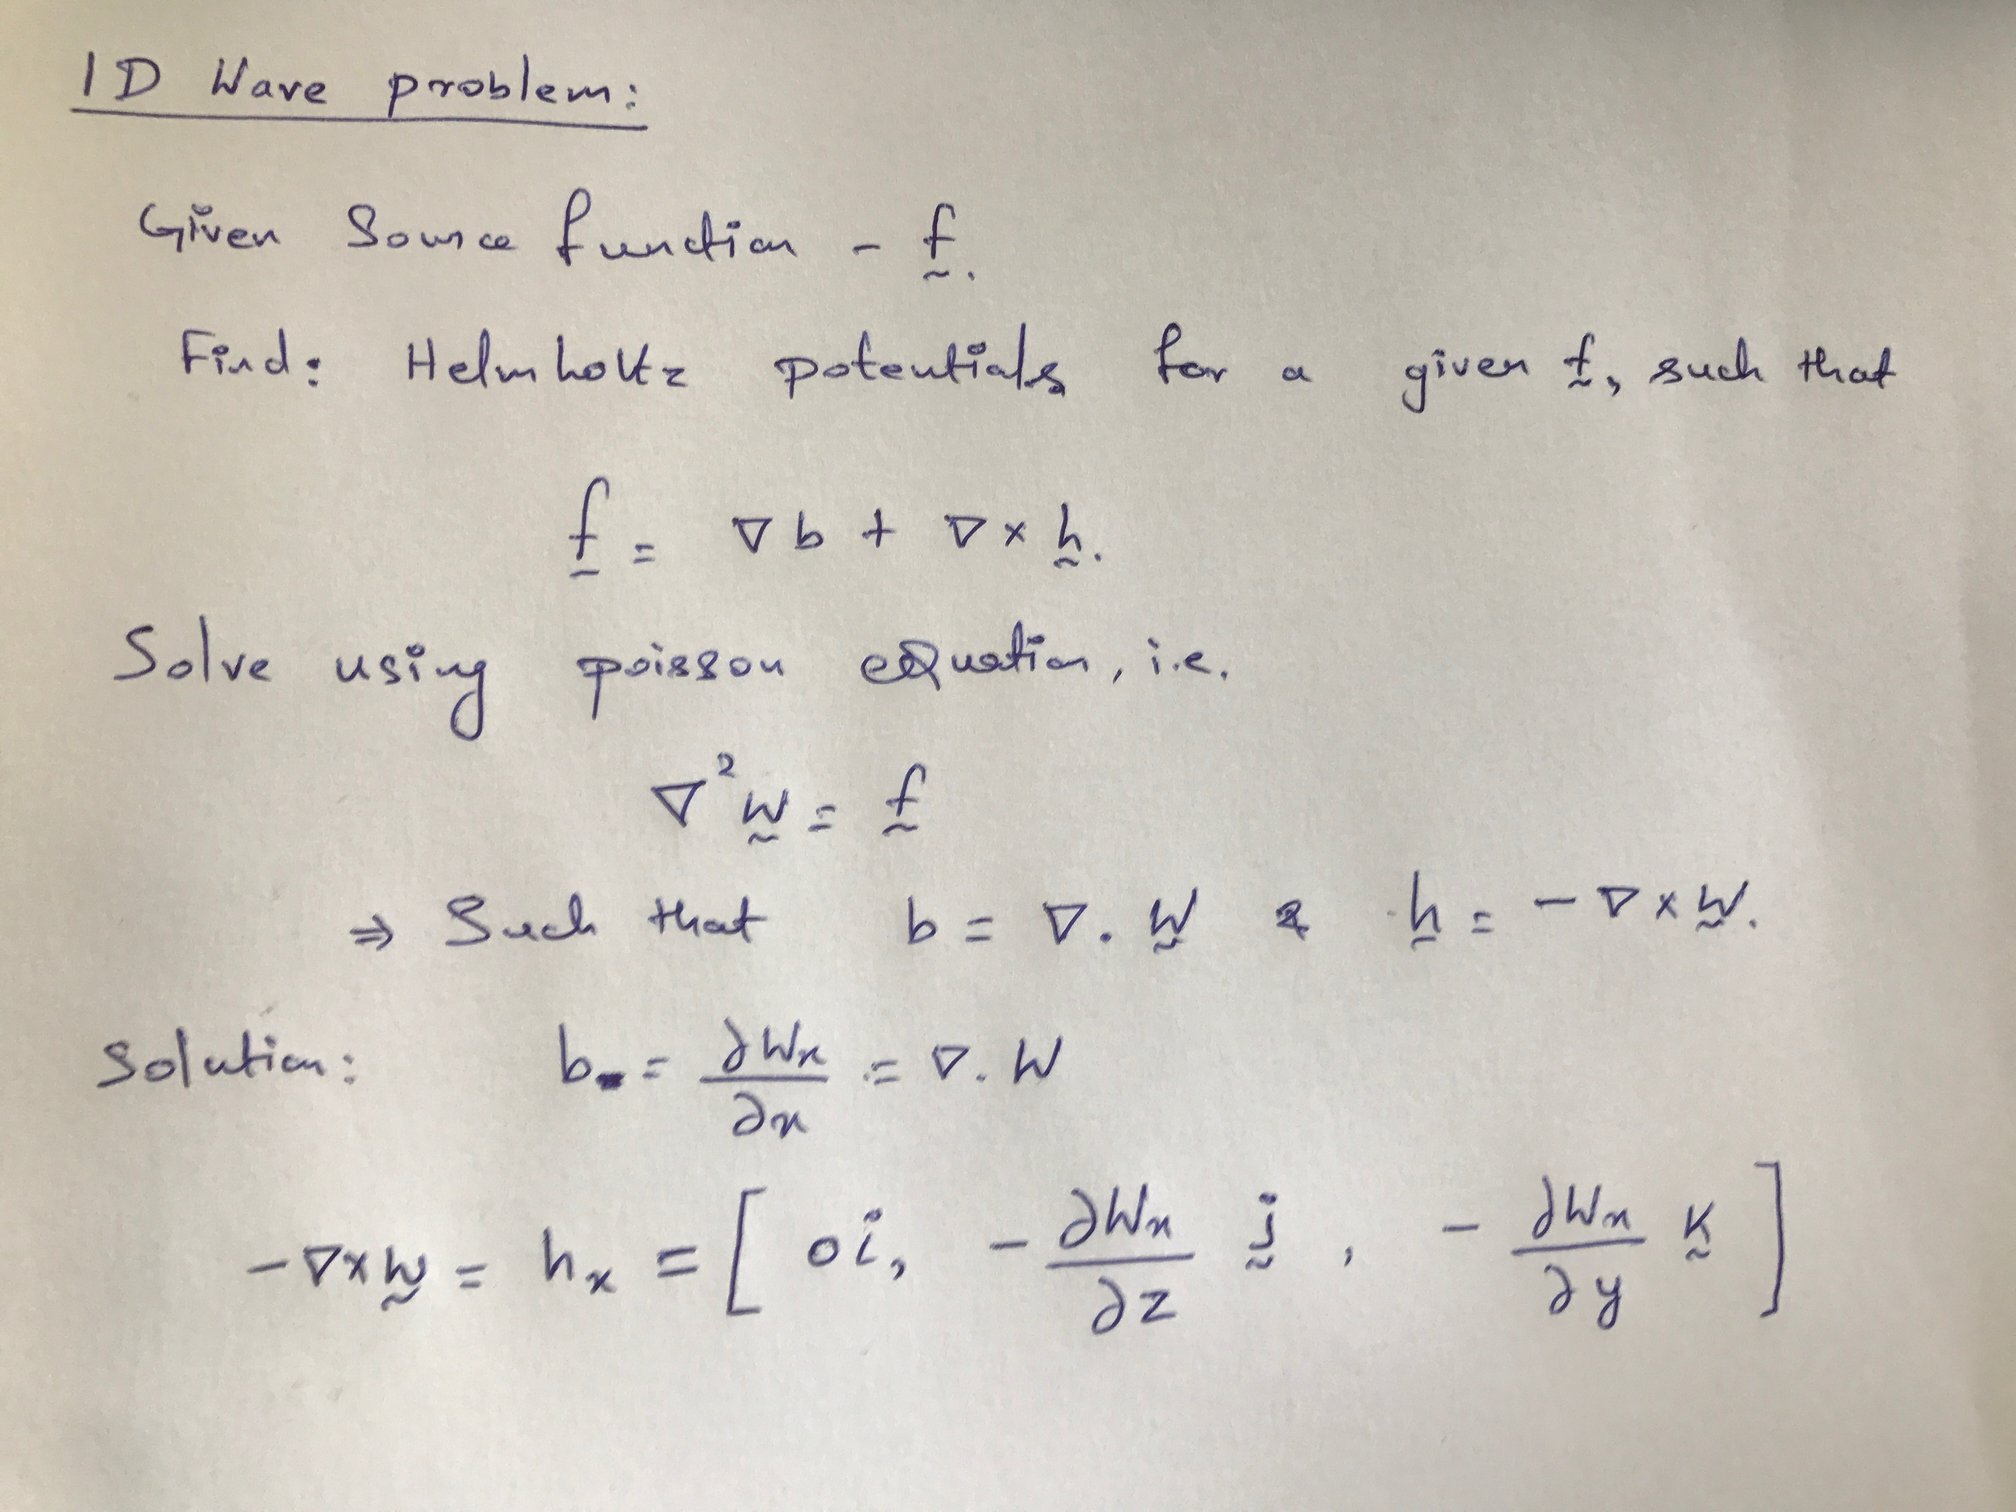 1D Wave problem:
Given Source function - f.
Find: Helmholtz potentials for a given f, such that
f = ∇b + ∇×h.
Solve using poisson equation, i.e.
∇²w = f
⇒ Such that b = ∇.W & h = -∇×W.
Solution: b = ∂Wx/∂x = ∇.W
-∇×w = hx = [ 0i, -∂Wx/∂z j, -∂Wx/∂y k ]